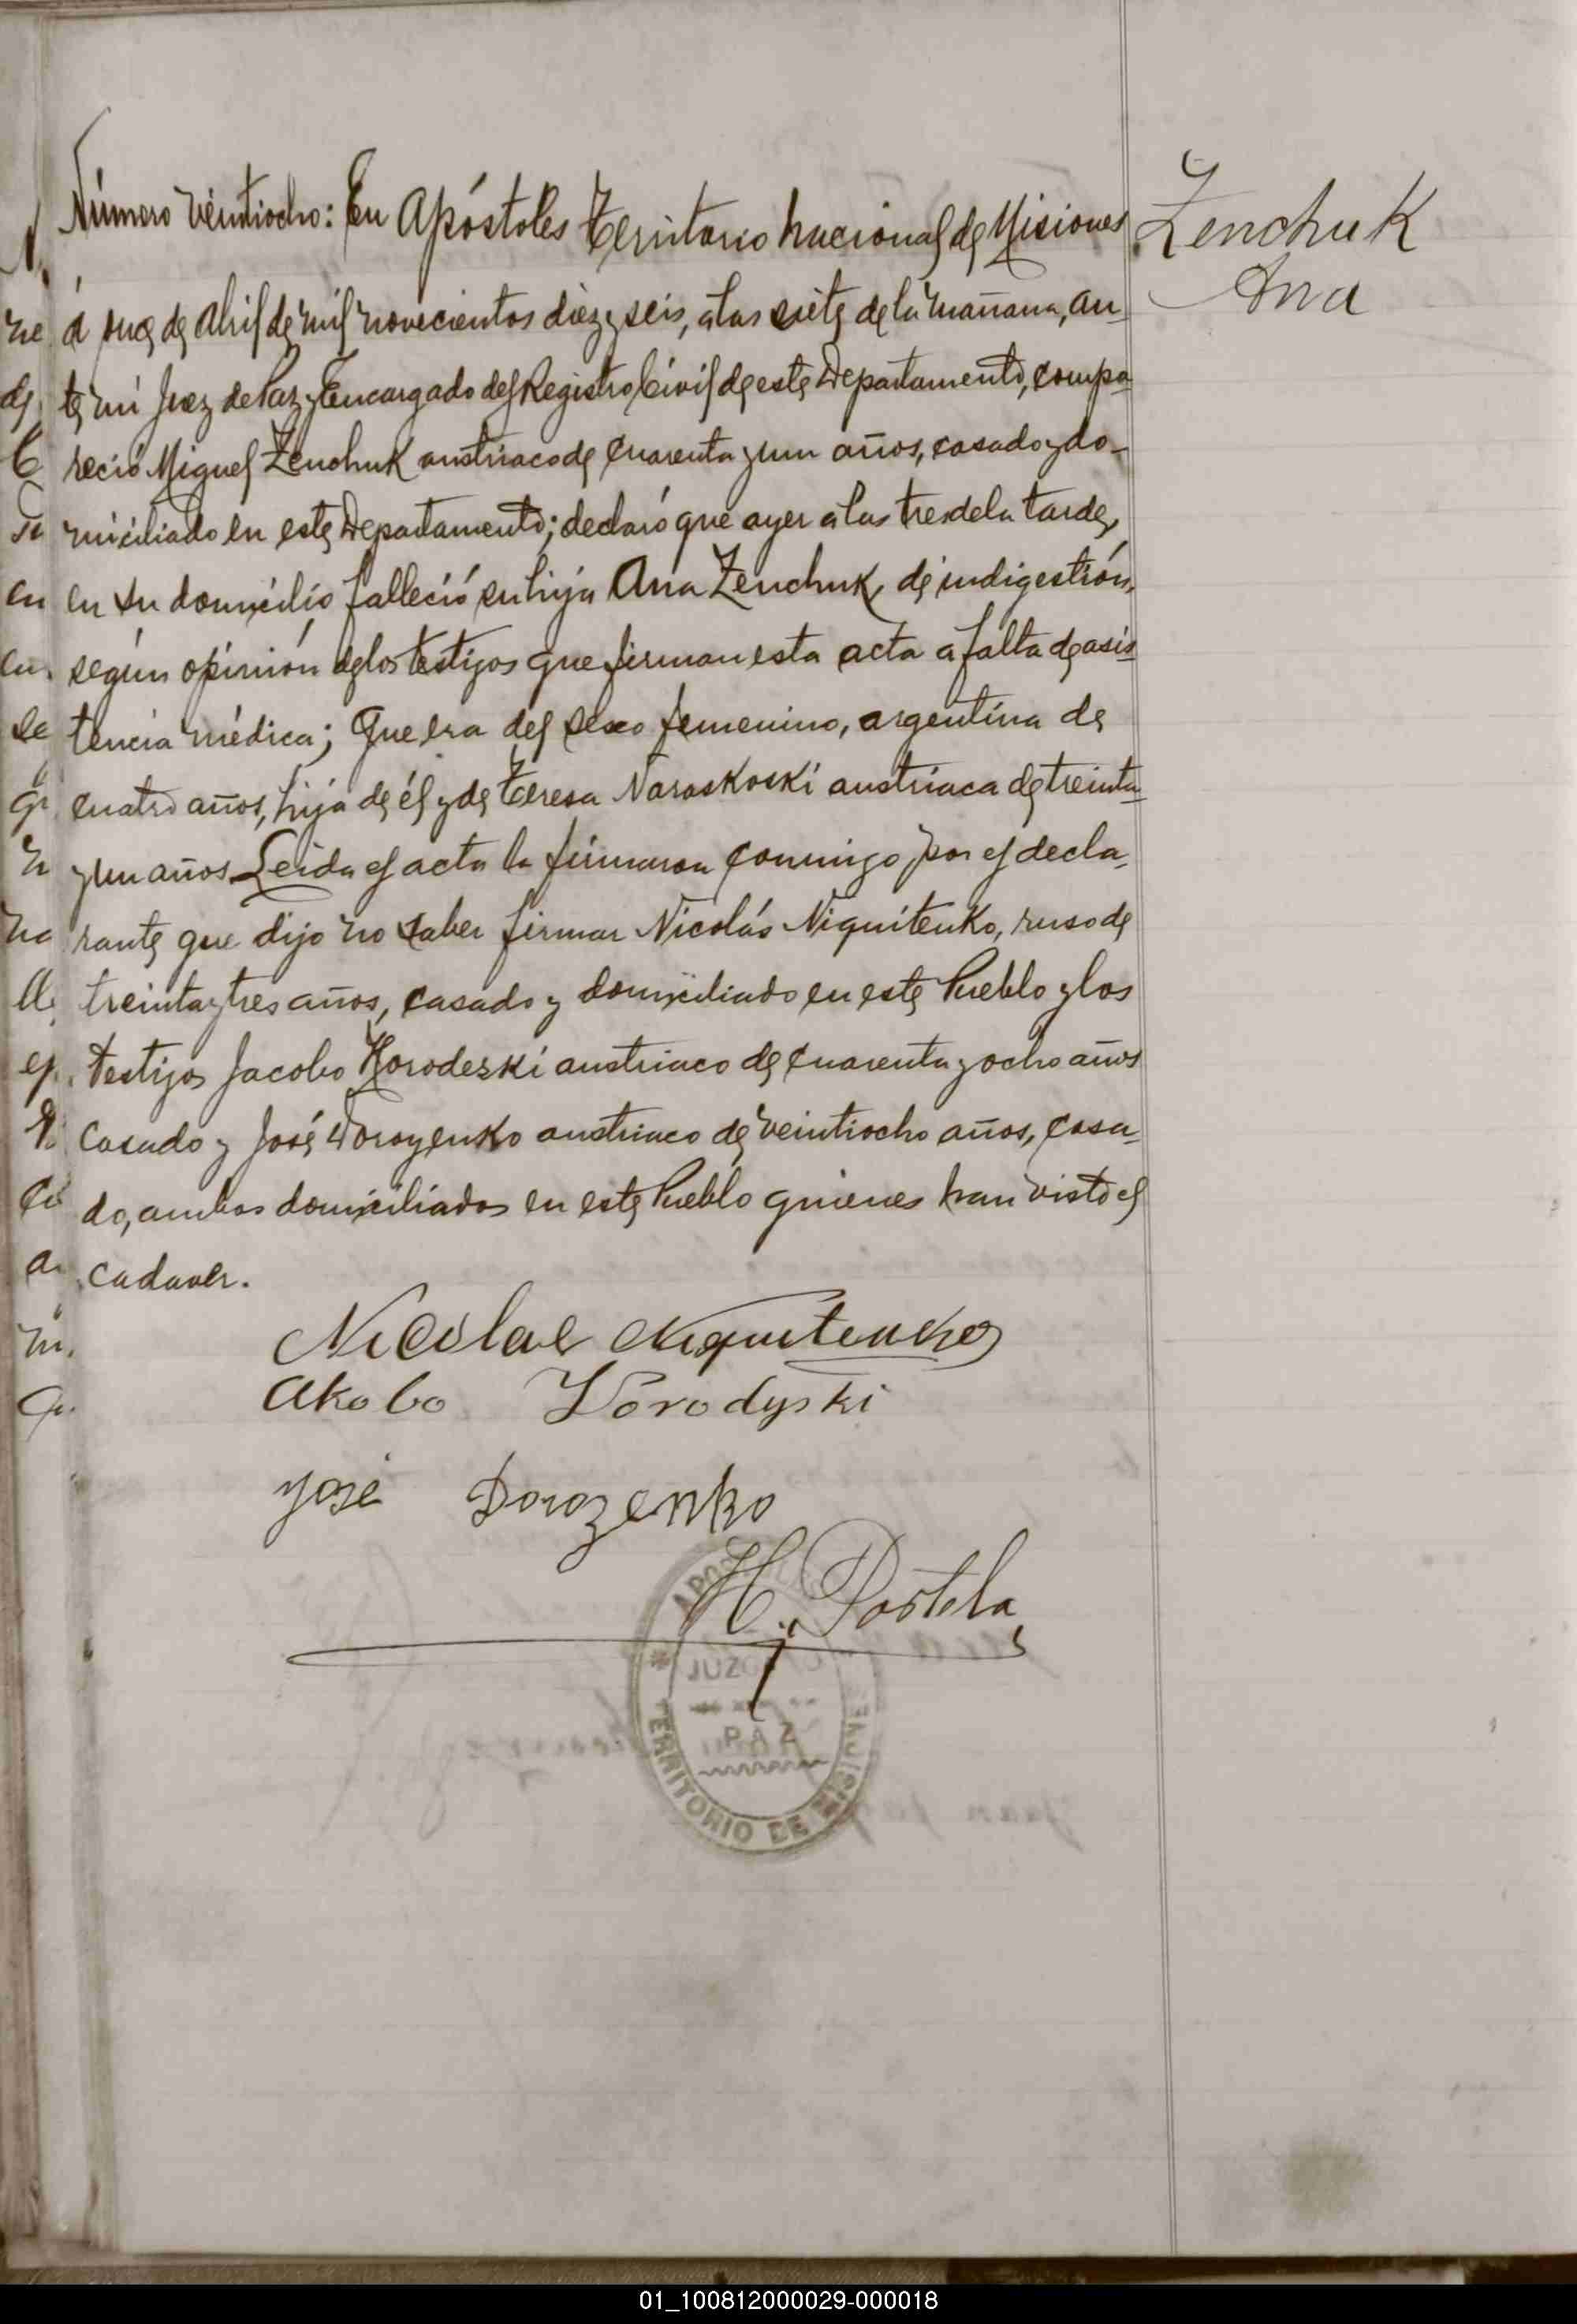 Número veintiocho: En Apóstoles Territorio nacional de Misiones
á once de Abril de mil novecientos diez y seis, a las siete de la mañana, an-
te mí Juez de Paz y Encargado del Registro Civil de este Departamento, compa-
reció Miguel Zenchuk austriaco de cuarenta y un años, casado y do-
miciliado en este Departamento; declaró que ayer a las tres de la tarde,
en su domicilio falleció su hija Ana Zenchuk, de indigestión,
según opinión de los testigos que firman esta acta a falta de asis-
tencia médica; Que era del sexo femenino, argentina de
cuatro años, hija de él y de Teresa Naroskoski austriaca de treinta
y un años Leida el acta la firmaron conmigo, por el decla-
rante que dijo no saber firmar Nicolás Niquitenko, ruso de
treinta y tres años, casado y domiciliado en este Pueblo y los
testigos Jacobo Horodeski austriaco de cuarenta y ocho años
casado y José Doroyenko austriaco de veintiocho años, casa-
do, ambos domiciliados en este Pueblo quienes han visto el
cadaver.
Zenchuk
Ana
Nicolas Niquitenko
Akobo Horodyski
José Dorozenko
H. Portela
JUZ
PAZ
TERRITORIO DE MISIONES
01_100812000029-000018